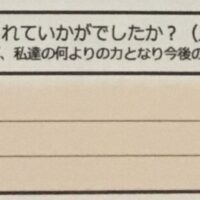 れていかがでしたか？（
、私達の何よりの力となり今後の